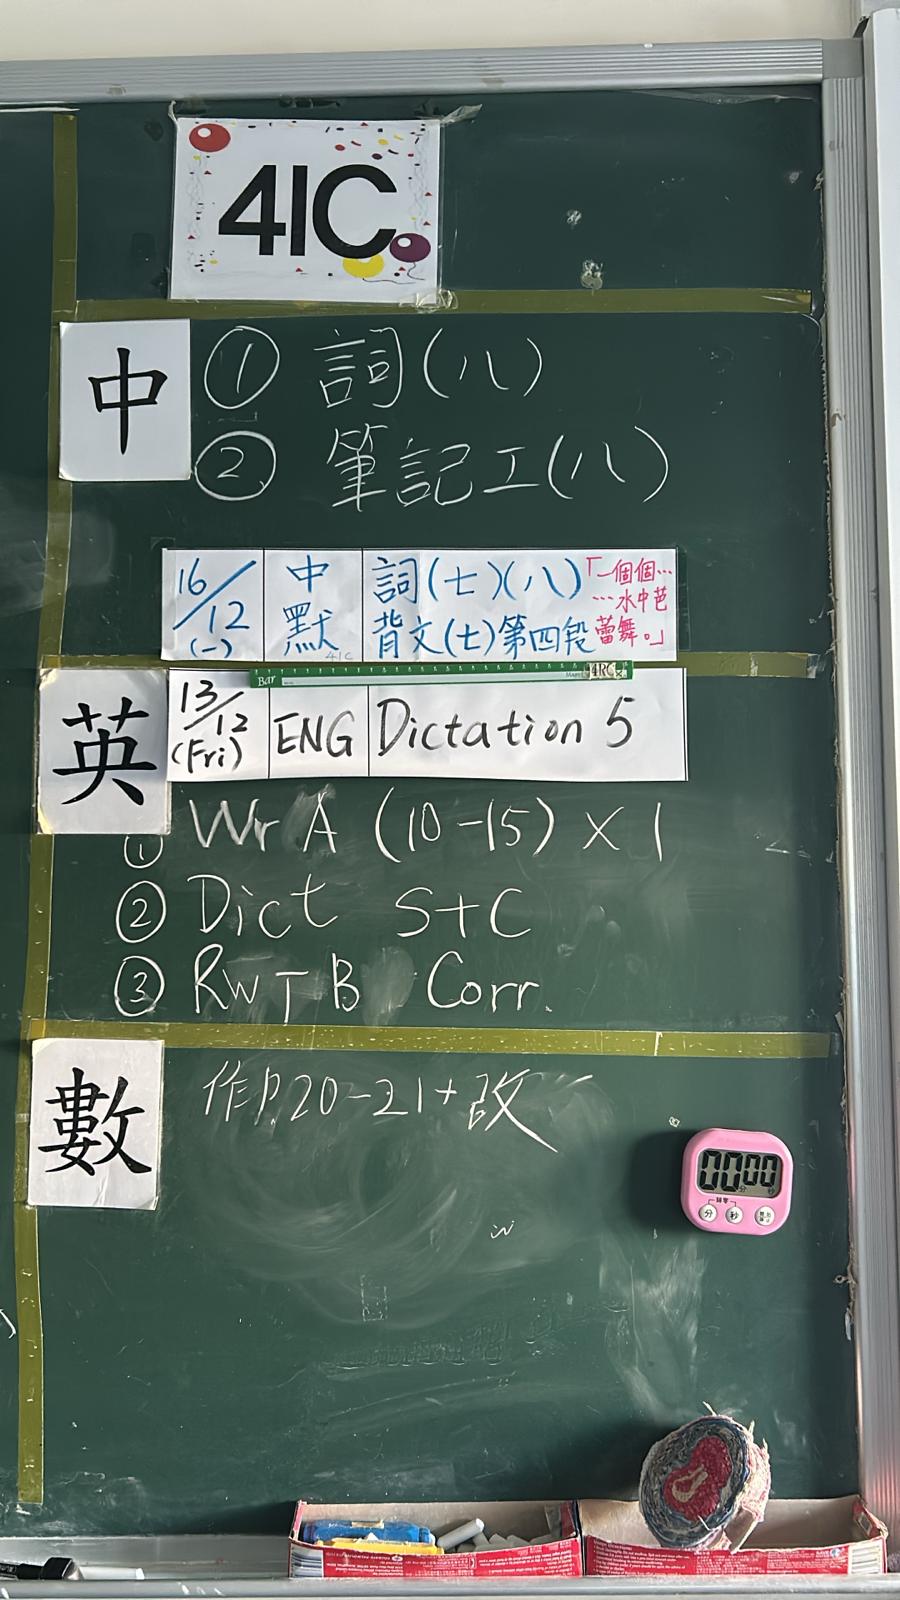 41C
中
① 詞(八)
② 筆記工(八)
16/12 (一) 中默 詞(七)(八) 背文(七)第四段 「一個個… …水中芭蕾舞。」
41C
Bar 4RC
英
13/12 (Fri) ENG Dictation 5
① Wr A (10-15) × 1
② Dict S+C
③ RWTB Corr.
數
作P.20-21+改
00 00
分 秒